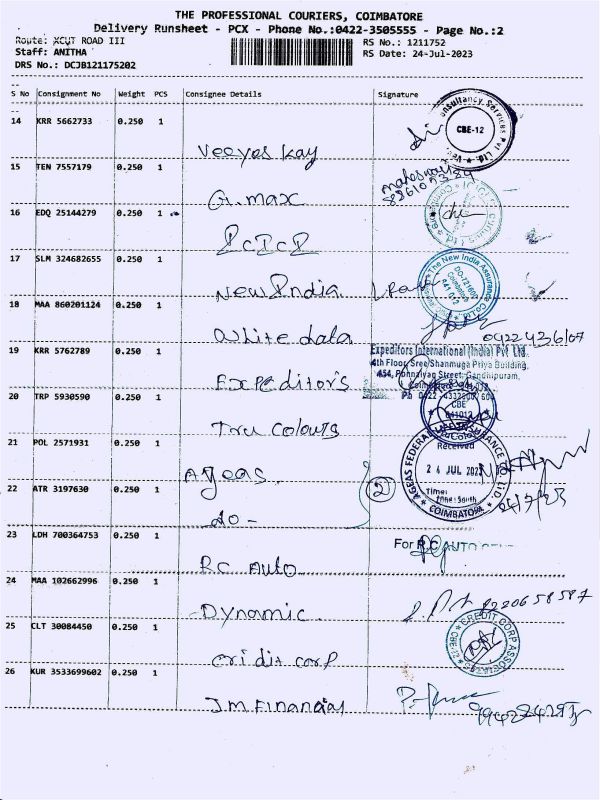 THE PROFESSIONAL COURIERS, COIMBATORE
Delivery Runsheet - PCX - Phone No.:0422-3505555 - Page No.:2
Route: XCUT ROAD III
RS No.: 1211752
Staff: ANITHA
RS Date: 24-Jul-2023
DRS No.: DCJB121175202
S No Consignment No Weight PCS Consignee Details Signature
14 KRR 5662733 0.250 1
Veeyes Kay
CBE-12
15 TEN 7557179 0.250 1
G.max
16 EDQ 25144279 0.250 1
ICICI
17 SLM 324682655 0.250 1
New India
The New India Assurance Co Ltd
18 MAA 860201124 0.250 1
White data
19 KRR 5762789 0.250 1
Expeditors
Expeditors International (India) Pvt Ltd.
4th Floor, Sree Shanmuga Priya Building,
454, Ponnaiyan Street, Gandhipuram,
20 TRP 5930590 0.250 1
Tru Colours
21 POL 2571931 0.250 1
Ageas
Received
24 JUL 2023
Time:
COIMBATORE
22 ATR 3197630 0.250 1
do -
2
23 LDH 700364753 0.250 1
RC Auto
For R C AUTO
24 MAA 102662996 0.250 1
Dynamic
25 CLT 30084450 0.250 1
Cridit corp
26 KUR 3533699602 0.250 1
JM Financial